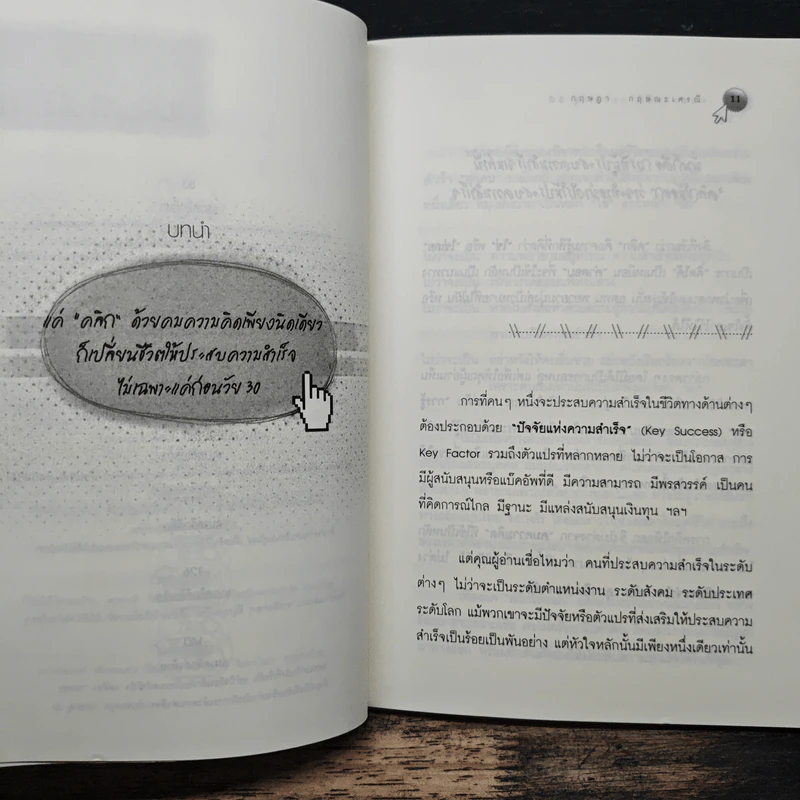 บทนำ
แค่ "คลิก" ด้วยคมความคิดเพียงนิดเดียว
ก็เปลี่ยนชีวิตให้ประสบความสำเร็จ
ไม่เฉพาะแค่ก่อนวัย 30
กฤษฎา กฤษณะเศรณี 11
การที่คนๆ หนึ่งจะประสบความสำเร็จในชีวิตทางด้านต่างๆ
ต้องประกอบด้วย "ปัจจัยแห่งความสำเร็จ" (Key Success) หรือ
Key Factor รวมถึงตัวแปรที่หลากหลาย ไม่ว่าจะเป็นโอกาส การ
มีผู้สนับสนุนหรือแบ็คอัพที่ดี มีความสามารถ มีพรสวรรค์ เป็นคน
ที่คิดการณ์ไกล มีฐานะ มีแหล่งสนับสนุนเงินทุน ฯลฯ
แต่คุณผู้อ่านเชื่อไหมว่า คนที่ประสบความสำเร็จในระดับ
ต่างๆ ไม่ว่าจะเป็นระดับตำแหน่งงาน ระดับสังคม ระดับประเทศ
ระดับโลก แม้พวกเขาจะมีปัจจัยหรือตัวแปรที่ส่งเสริมให้ประสบความ
สำเร็จเป็นร้อยเป็นพันอย่าง แต่หัวใจหลักนั้นมีเพียงหนึ่งเดียวเท่านั้น